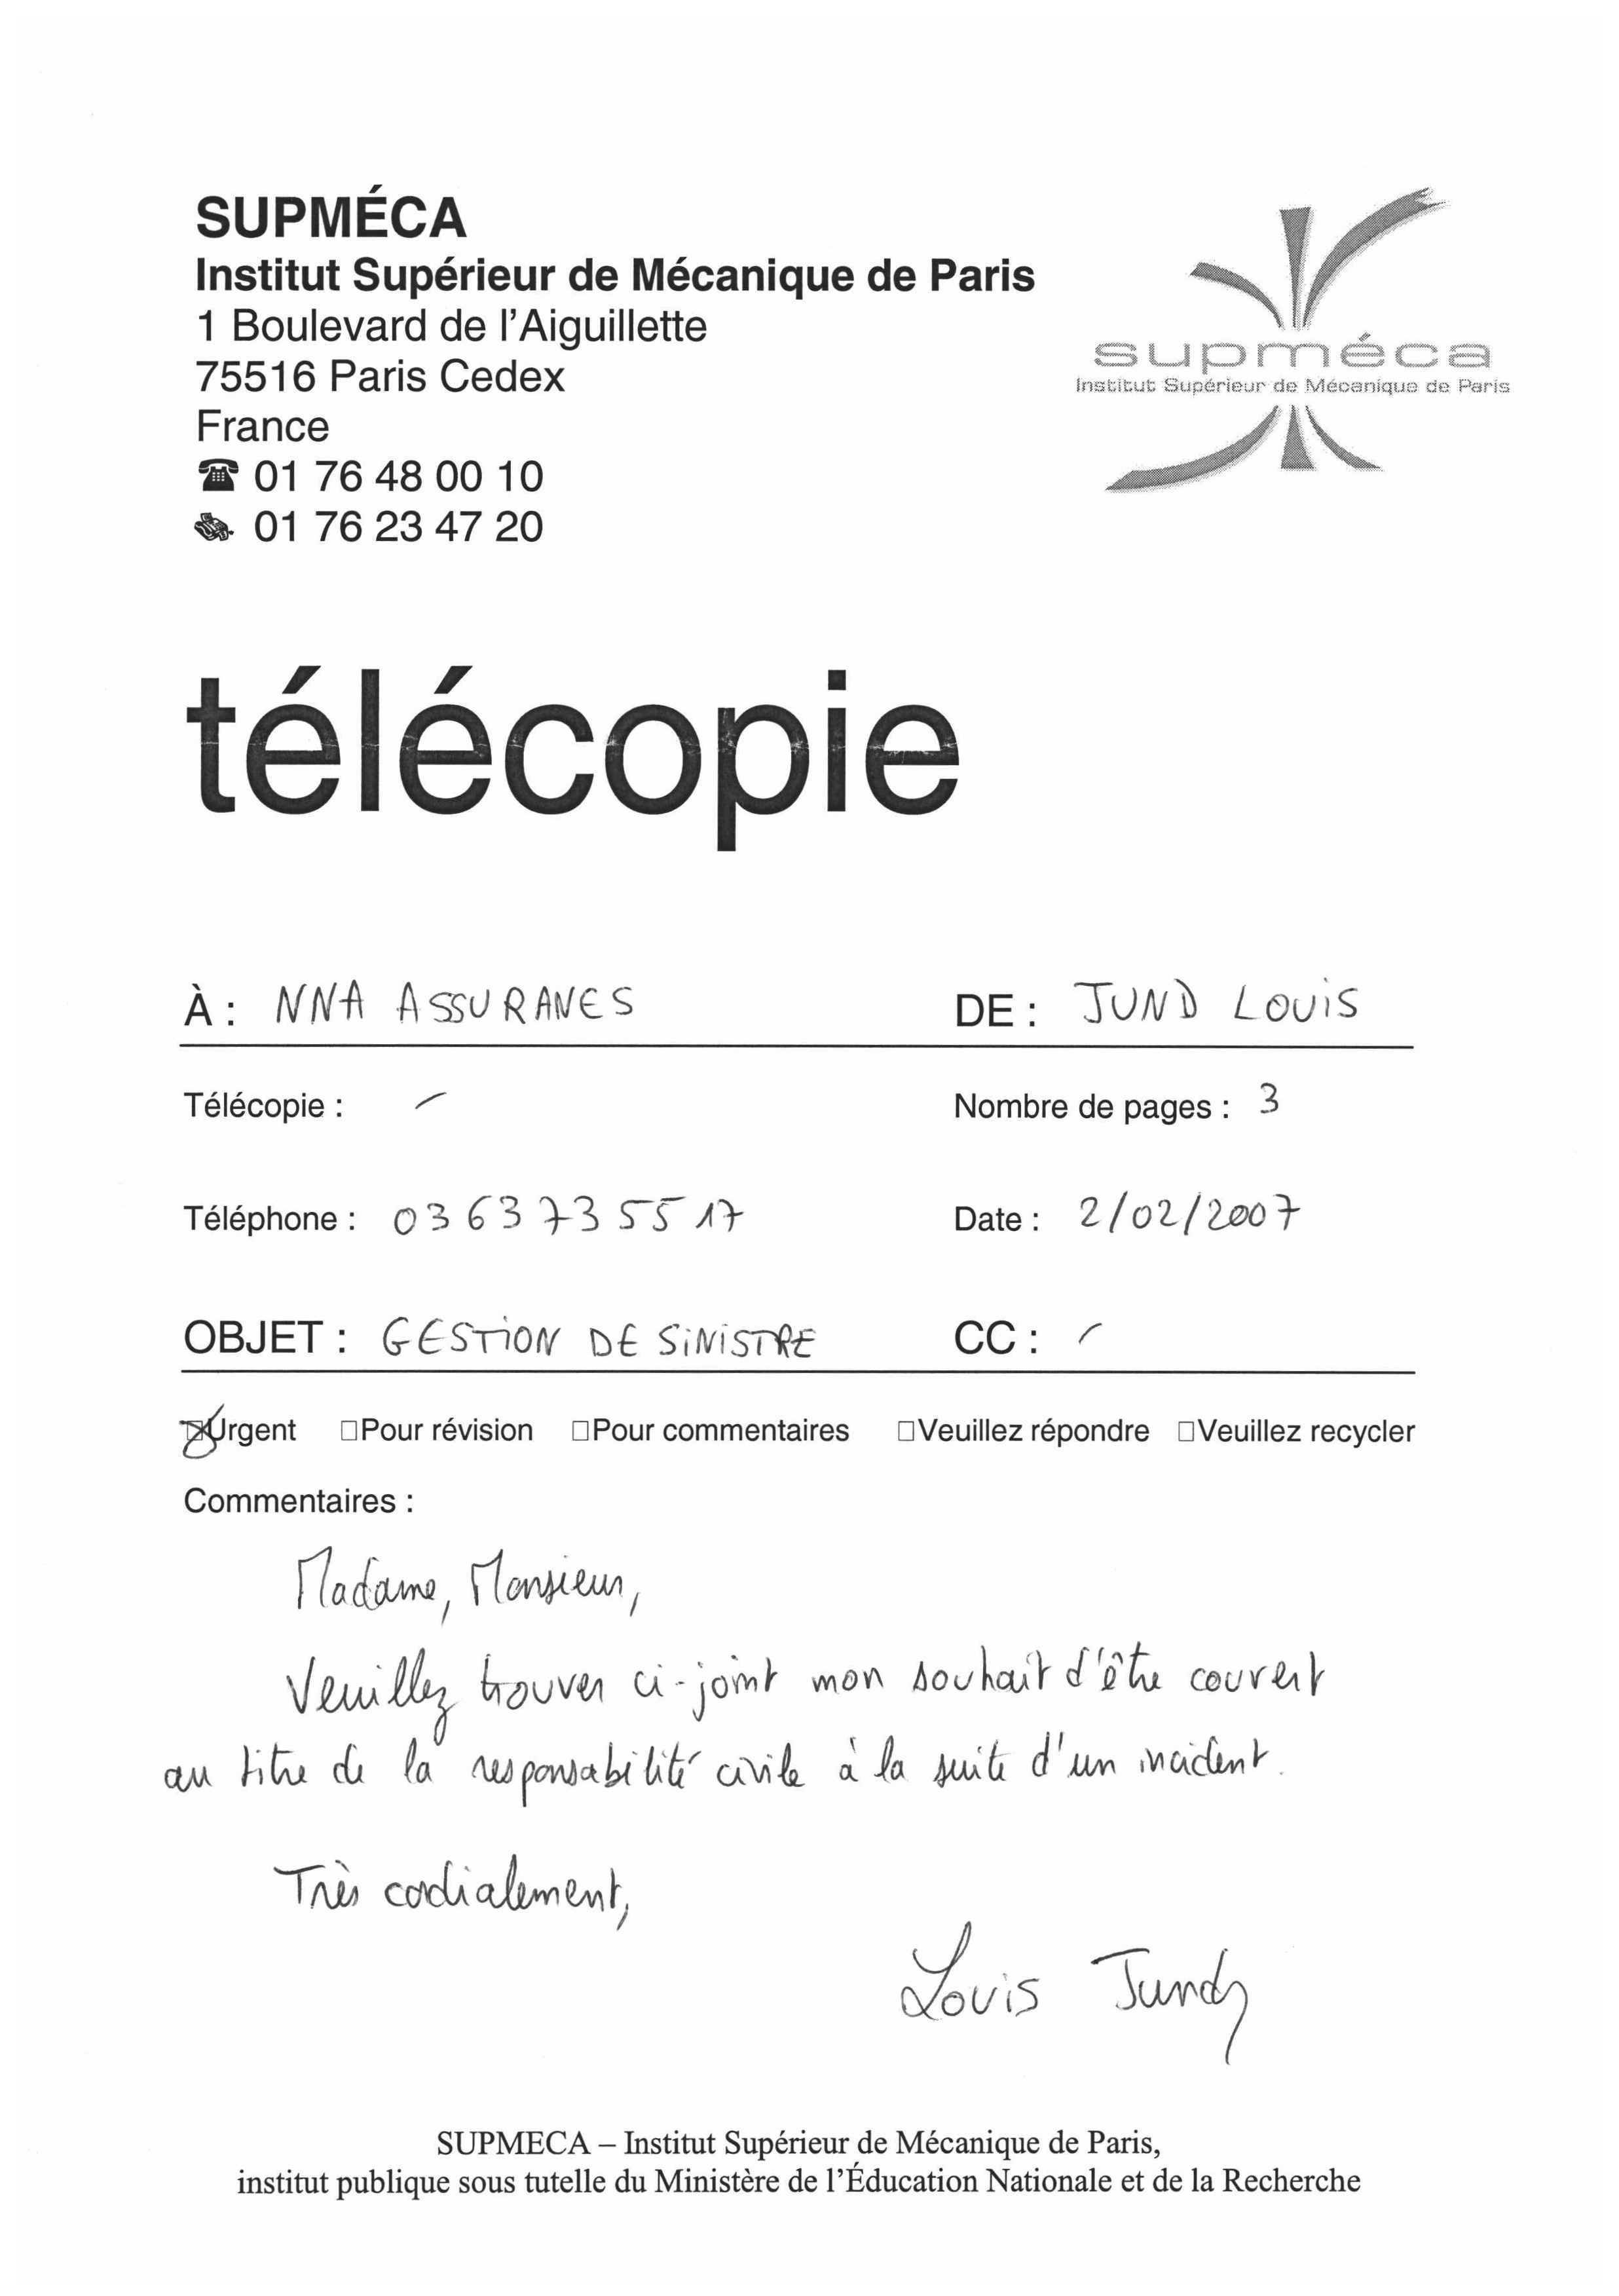 SUPMÉCA
Institut Supérieur de Mécanique de Paris
1 Boulevard de l'Aiguillette
75516 Paris Cedex
France
01 76 48 00 10
01 76 23 47 20
supméca
Institut Supérieur de Mécanique de Paris
télécopie
À : NNA ASSURANCES DE : JUND LOUIS
Télécopie : / Nombre de pages : 3
Téléphone : 03 63 73 55 17 Date : 2/02/2007
OBJET : GESTION DE SINISTRE CC : /
☒Urgent □Pour révision □Pour commentaires □Veuillez répondre □Veuillez recycler
Commentaires :
Madame, Monsieur,
Veuillez trouver ci-joint mon souhait d'être couvert
au titre de la responsabilité civile à la suite d'un incident.
Très cordialement,
Louis Jund
SUPMECA – Institut Supérieur de Mécanique de Paris,
institut publique sous tutelle du Ministère de l'Éducation Nationale et de la Recherche